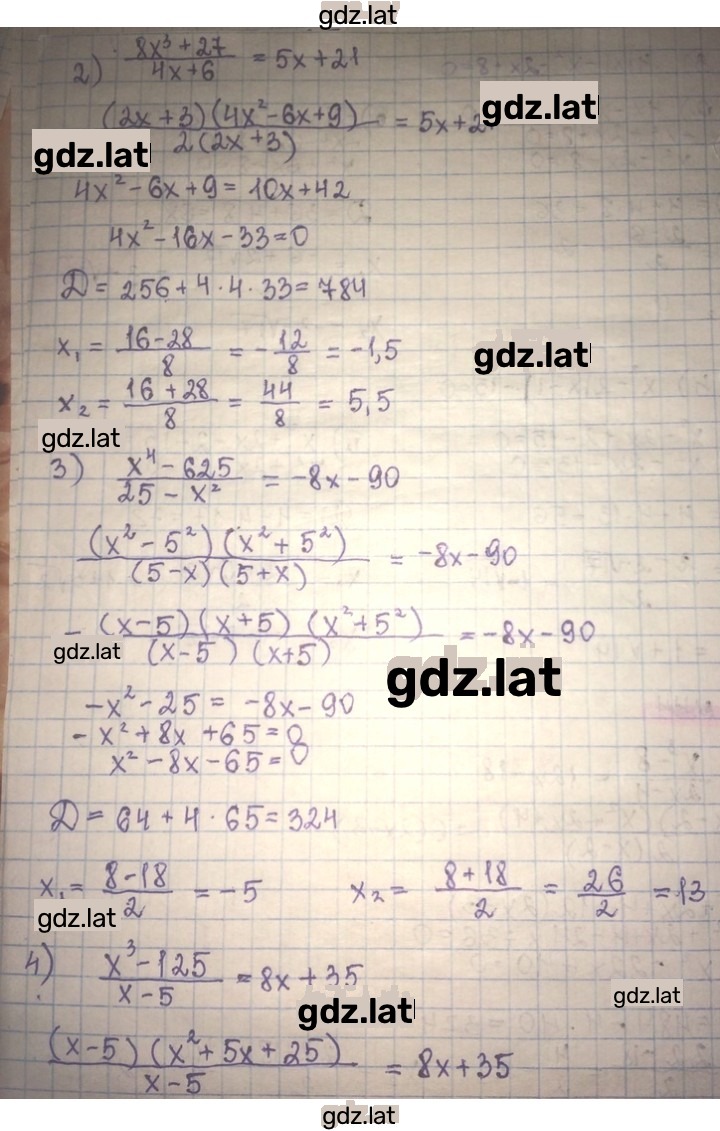 gdz.lat
2) (8x³+27)/(4x+6) = 5x+21
gdz.lat
((2x+3)(4x²-6x+9))/(2(2x+3)) = 5x+2
gdz.lat
4x²-6x+9=10x+42
4x²-16x-33=0
Д=256+4·4·33=784
x₁ = (16-28)/8 = -12/8 = -1,5
gdz.lat
x₂ = (16+28)/8 = 44/8 = 5,5
gdz.lat
3) (x⁴-625)/(25-x²) = -8x-90
((x²-5²)(x²+5²))/((5-x)(5+x)) = -8x-90
-((x-5)(x+5)(x²+5²))/((x-5)(x+5)) = -8x-90
gdz.lat
gdz.lat
-x²-25= -8x-90
-x²+8x+65=0
x²-8x-65=0
Д=64+4·65=324
x₁= (8-18)/2 = -5 x₂= (8+18)/2 = 26/2 =13
gdz.lat
4) (x³-125)/(x-5) = 8x+35
gdz.lat
gdz.lat
((x-5)(x²+5x+25))/(x-5) = 8x+35
gdz.lat